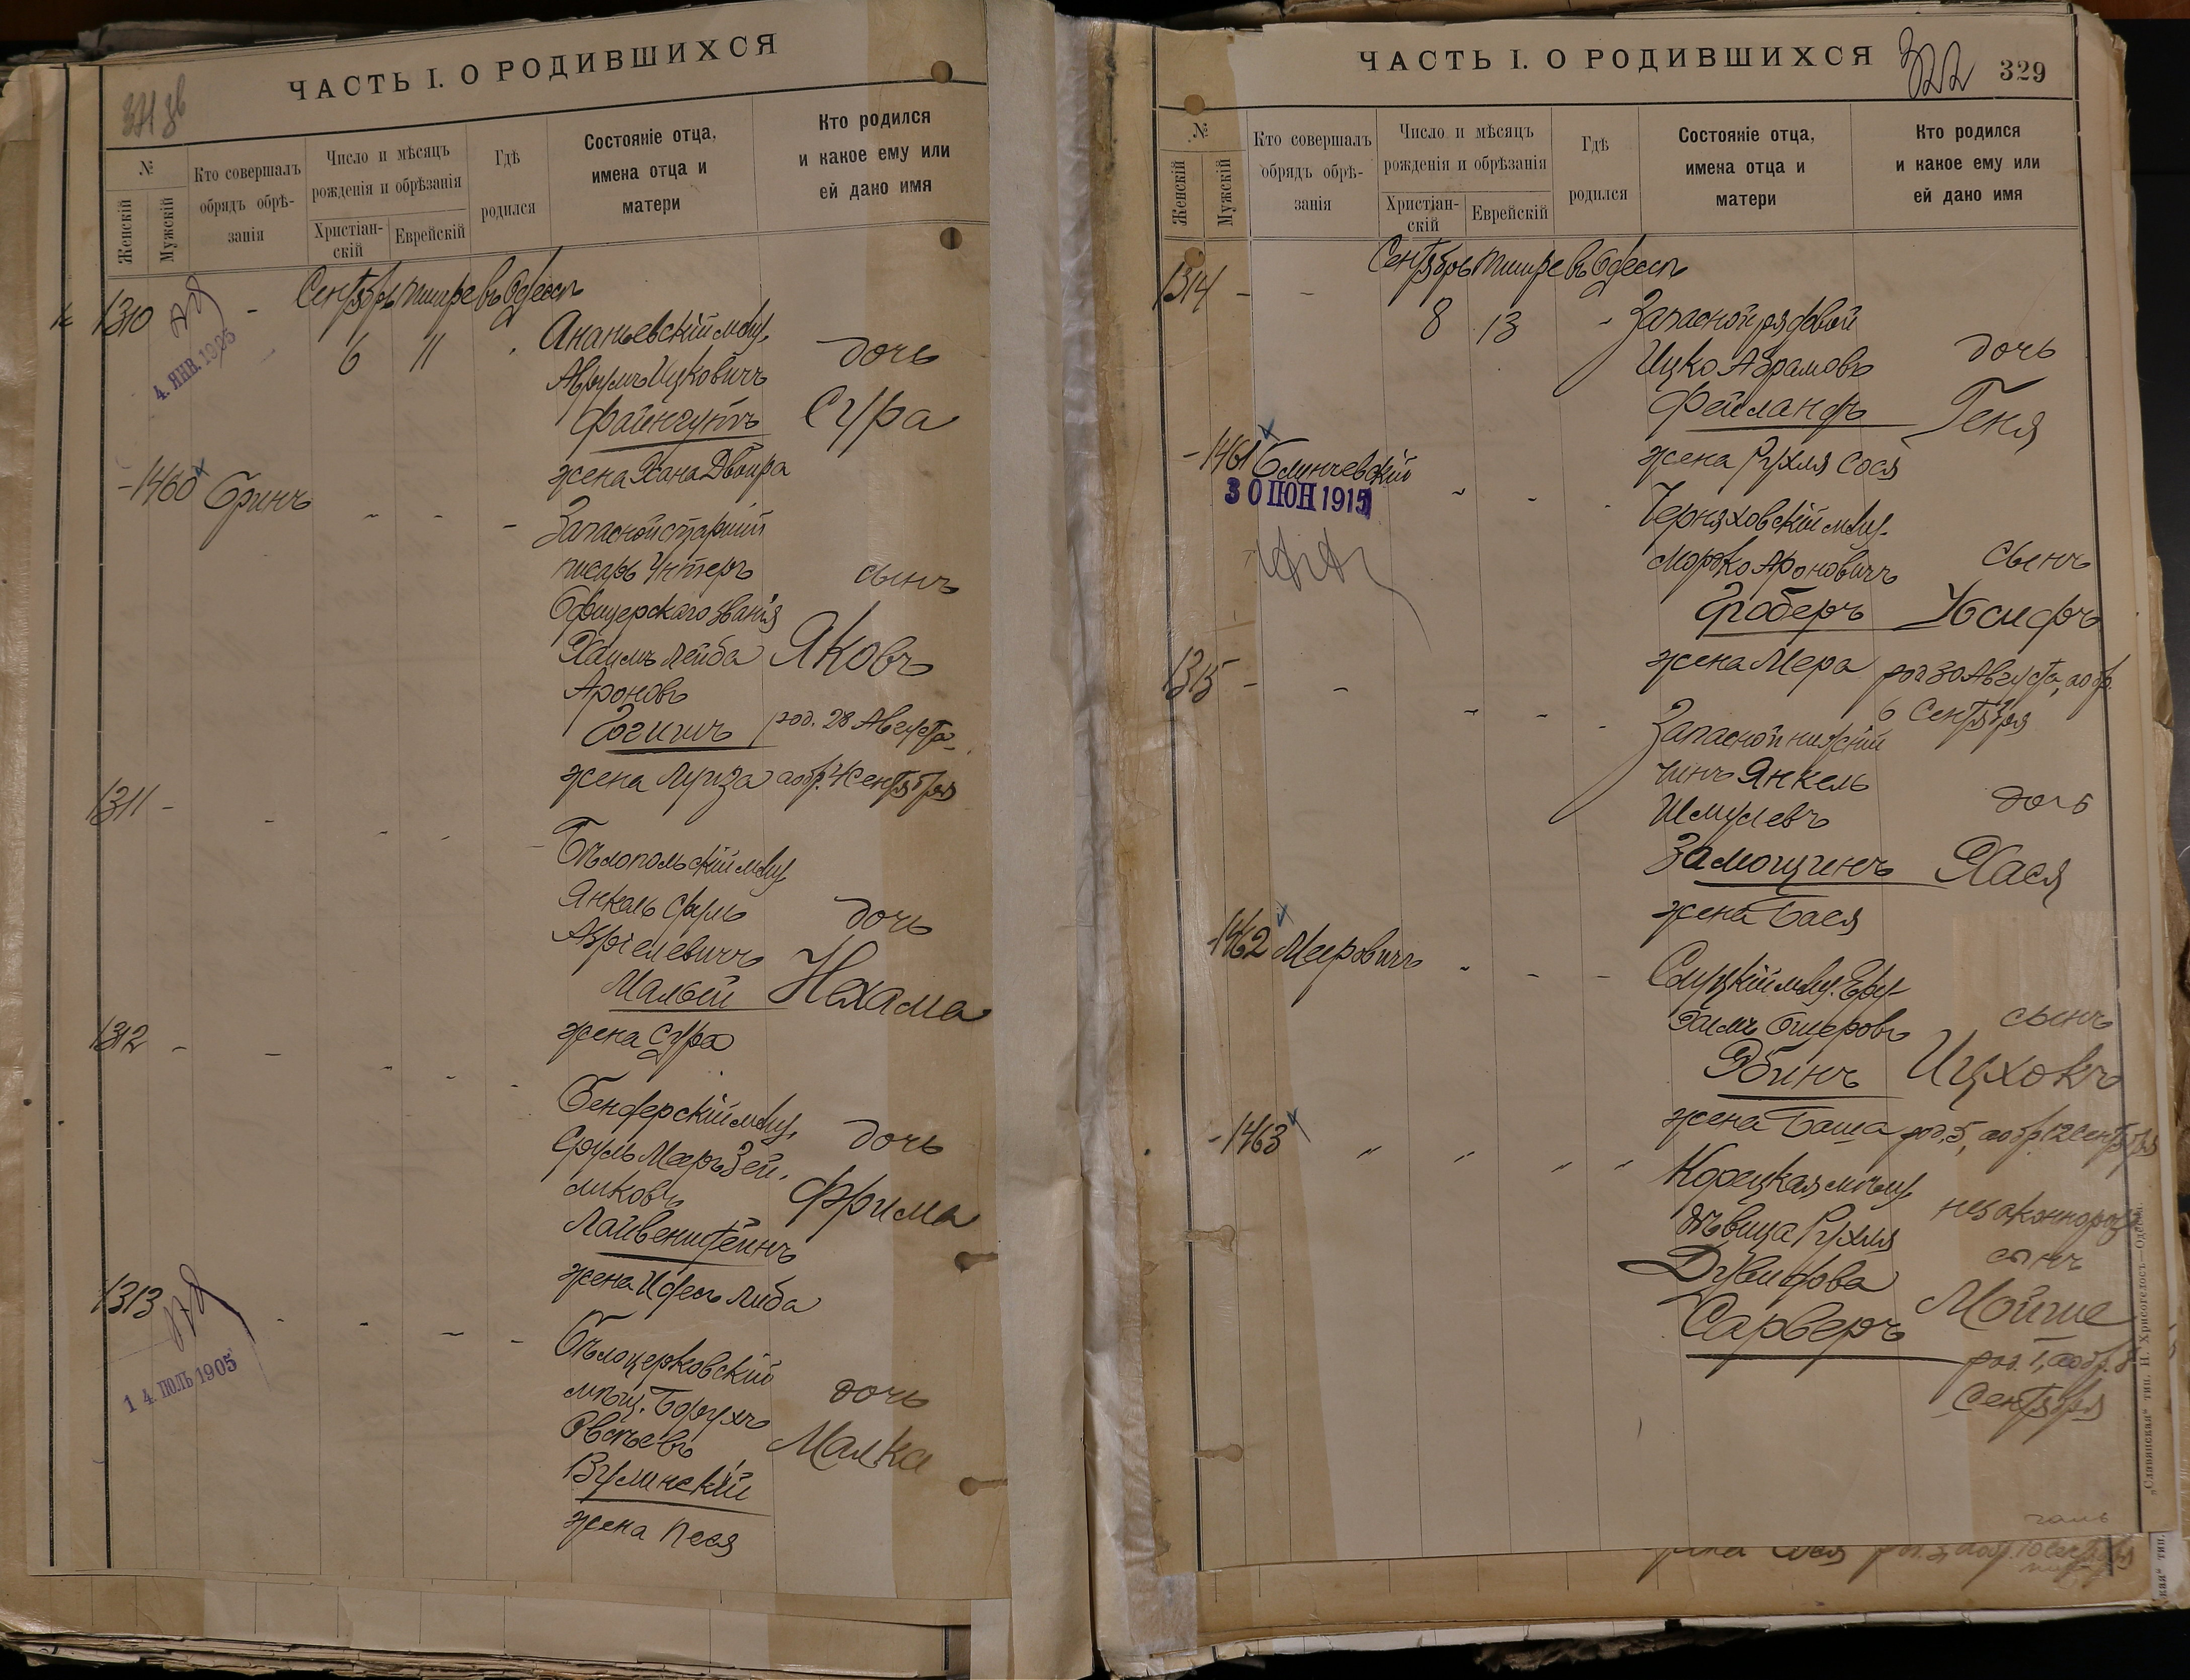 ЧАСТЬ I. О РОДИВШИХСЯ
№
Женскій
Мужскій
Кто совершалъ
обрядъ обрѣ-
занія
Число и мѣсяцъ
рожденія и обрѣзанія
Христіан-
скій
Еврейскій
Гдѣ
родился
Состояніе отца,
имена отца и
матери
Кто родился
и какое ему или
ей дано имя
Сентябрь тишре въ Одессѣ
1310 -
4. ЯНВ. 1905
6 11
Ананьевскій мѣщ.
Аврумъ Ицковичъ
Файнгутъ
жена Хана Двойра
дочь
Сура
-1460 Бринъ
Запасной старшій
писарь Унтеръ
Офицерскаго званія
Хаимъ Лейба
Ароновъ
Гогинъ
жена Луиза
сынъ
Яковъ
род. 28 Августа
а обр. 4 Сентября
1311 -
Бѣлопольскій мѣщ.
Янкель Сруль
Азріелевичъ
Малый
жена Сура
дочь
Нехама
1312 -
Бендерскій мѣщ.
Сруль Мееръ Зей-
ликовъ
Лайвенштейнъ
жена Идесъ Либа
дочь
Фрима
1313
14. ІЮЛЬ 1905
Бѣлоцерковскій
мѣщ. Борухъ
Овсѣевъ
Вулинскій
жена Песя
дочь
Малка
ЧАСТЬ I. О РОДИВШИХСЯ
322 329
№
Женскій
Мужскій
Кто совершалъ
обрядъ обрѣ-
занія
Число и мѣсяцъ
рожденія и обрѣзанія
Христіан-
скій
Еврейскій
Гдѣ
родился
Состояніе отца,
имена отца и
матери
Кто родился
и какое ему или
ей дано имя
Сентябрь тишре въ Одессѣ
1314 -
8 13
Запасной рядовой
Ицко Абрамовъ
Фейландъ
жена Рухля Сося
дочь
Геня
-1461 Блинчевскій
30 ІЮН 1915
Черняховскій мѣщ.
Мордко Ароновичъ
Гроберъ
жена Мера
сынъ
Іосифъ
род 30 Августа, а обр.
6 Сентября
1315 -
Запасной нижній
чинъ Янкель
Шмулевъ
Замощинъ
жена Бася
дочь
Хася
-1462 Мееровичъ
Слуцкій мѣщ. Еру-
химъ Ошеровъ
Рбинъ
жена Баша
сынъ
Ицхокъ
род. 5, а обр. 12 Сентября
-1463
Корецкая мѣщ.
дѣвица Рухля
Дувидова
Сарверъ
незаконнорож
сынъ
Мойше
род. 1, а обр. 8
Сентября
„Славянская“ тип. Н. Хрисогелосъ—Одесса.